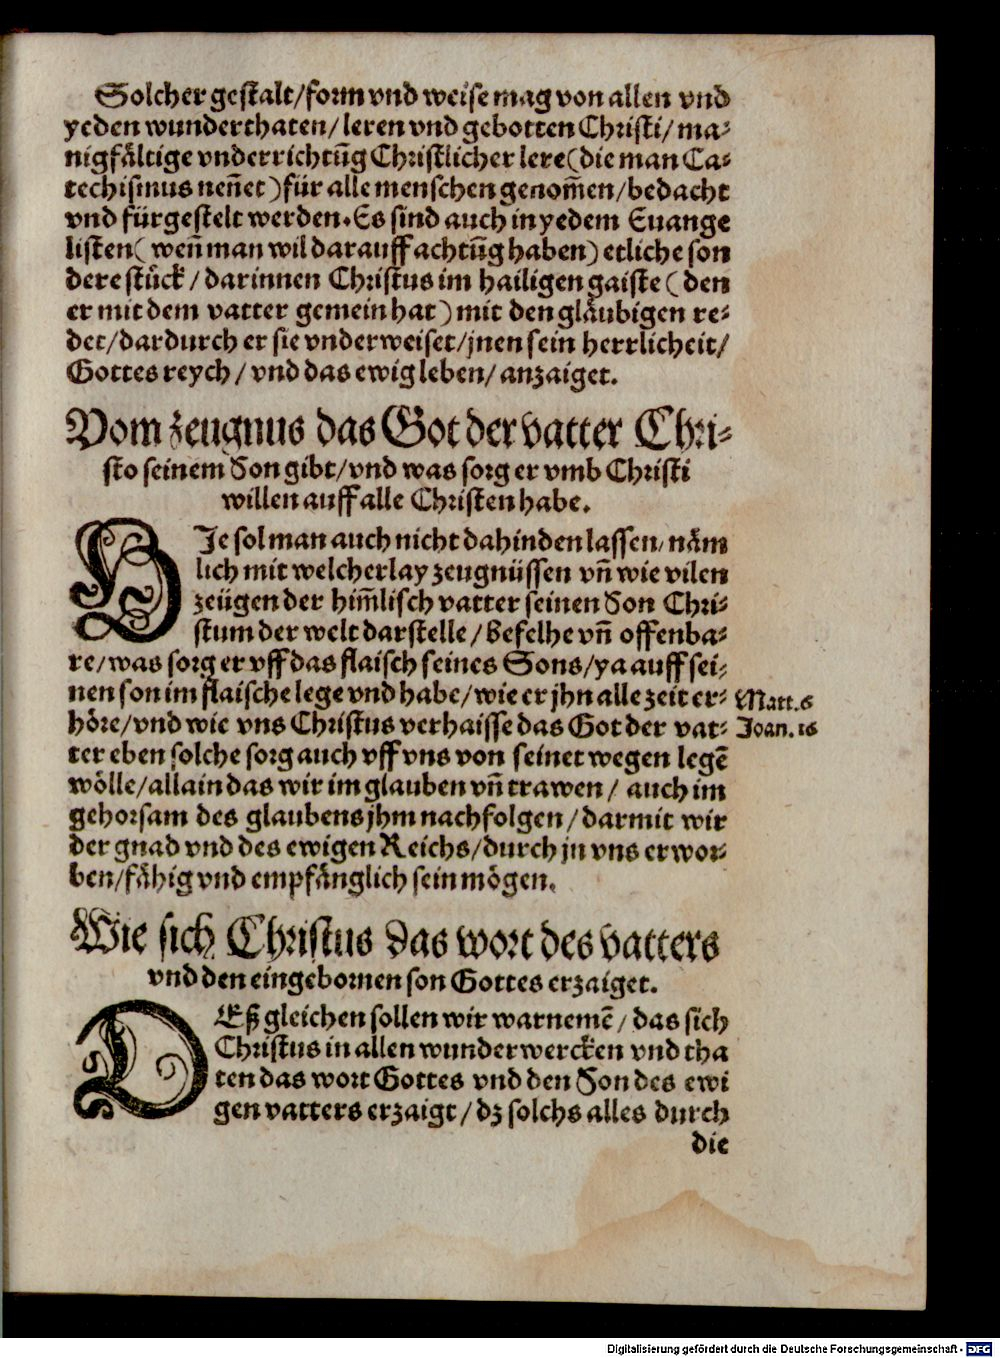 Solcher gestalt/form vnd weise mag von allen vnd
yeden wunderthaten/ leren vnd gebotten Christi/ ma-
nigfåltige vnderrichtūg Christlicher lere(die man Ca-
techismus nen̄et)für alle menschen genom̄en/bedacht
vnd fürgestelt werden.Es sind auch in yedem Euange
listen( wen̄ man wil darauff achtūg haben) etliche son
dere stůck/darinnen Christus im hailigen gaiste(den
er mit dem vatter gemein hat)mit den glåubigen re-
det/dardurch er sie vnderweiset/jnen sein herrlicheit/
Gottes reych/ vnd das ewig leben/ anzaiget.
Vom zeugnus das Got der vatter Chri-
sto seinem Son gibt/vnd was sorg er vmb Christi
willen auff alle Christen habe.
HJe sol man auch nicht dahinden lassen/ nåm
lich mit welcherlay zeugnüssen vn̄ wie vilen
zeügen der him̄lisch vatter seinen Son Chri-
stum der welt darstelle/befelhe vn̄ offenba-
re/was sorg er vff das flaisch seines Sons/ya auff sei-
nen son im flaische lege vnd habe/wie er jhn alle zeit er- Matt.6
höre/vnd wie vns Christus verhaisse das Got der vat- Joan.16
ter eben solche sorg auch vff vns von seinet wegen legē
wölle/allain das wir im glauben vn̄ trawen/ auch im
gehorsam des glaubens jhm nachfolgen/darmit wir
der gnad vnd des ewigen Reichs/durch jn vns erwor-
ben/fåhig vnd empfånglich sein mögen.
Wie sich Christus das wort des vatters
vnd den eingebornen son Gottes erzaiget.
DEß gleichen sollen wir warnemē/ das sich
Christus in allen wunderwercken vnd tha
ten das wort Gottes vnd den Son des ewi
gen vatters erzaigt/dz solchs alles durch
die
Digitalisierung gefördert durch die Deutsche Forschungsgemeinschaft - DFG